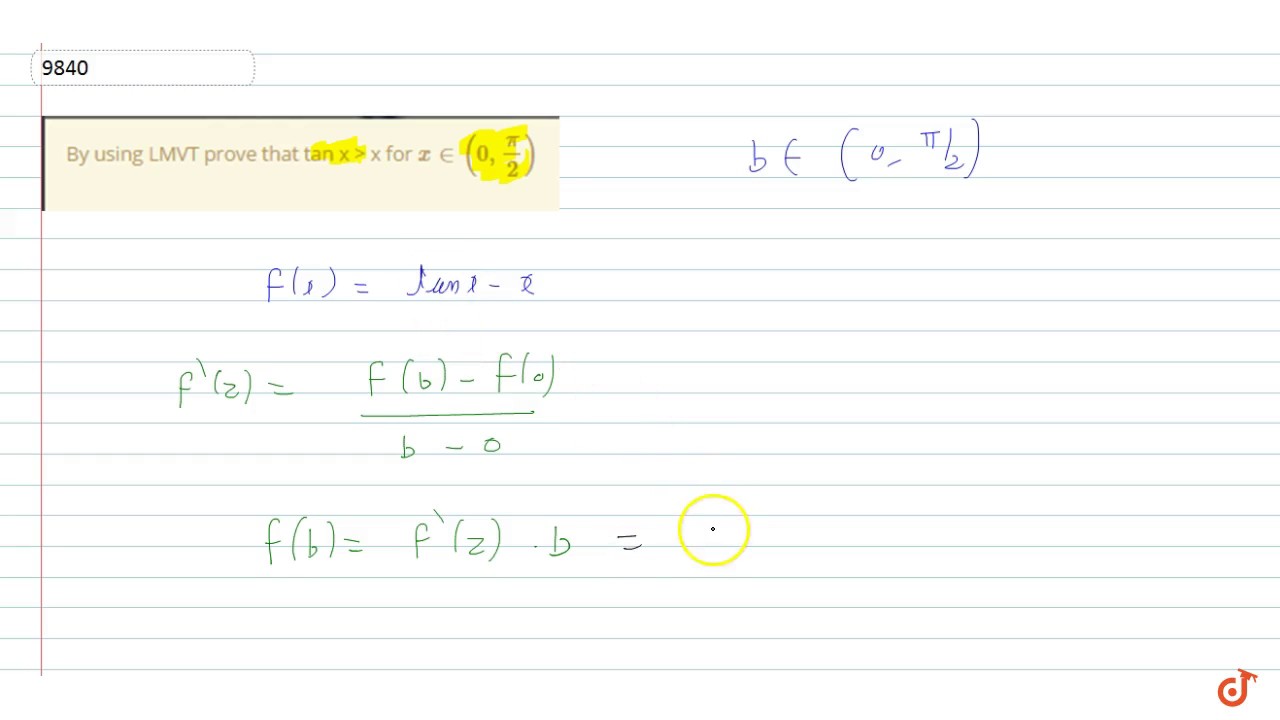 9840
By using LMVT prove that tan x > x for x ∈ (0, π/2)
b ∈ (0, π/2)
f(x) = tan x - x
f'(z) = f(b) - f(0) / b - 0
f(b) = f'(z) . b =